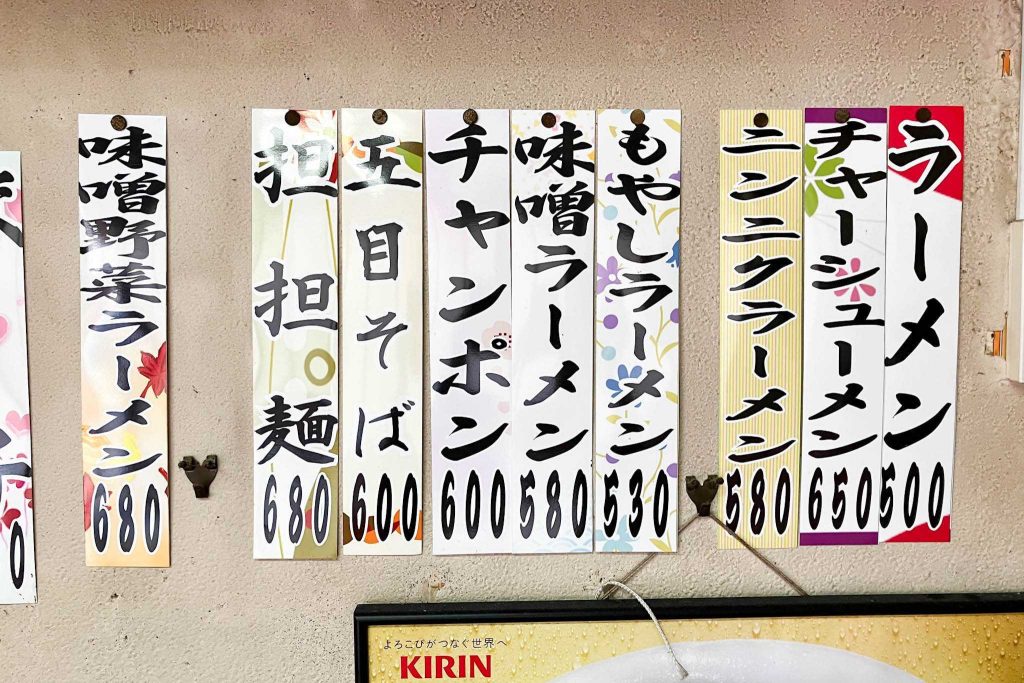 ラーメン
500
チャーシューメン
650
ニンニクラーメン
580
もやしラーメン
530
味噌ラーメン
580
チャンポン
600
五目そば
600
担担麺
680
味噌野菜ラーメン
680
よろこびがつなぐ世界へ
KIRIN